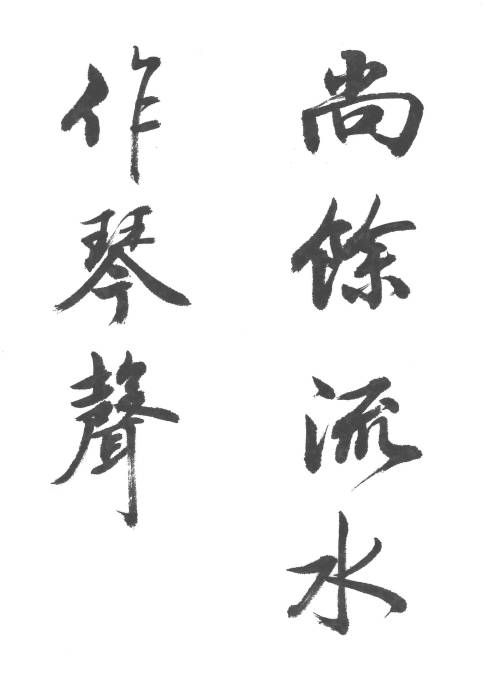 尚餘流水
作琴聲